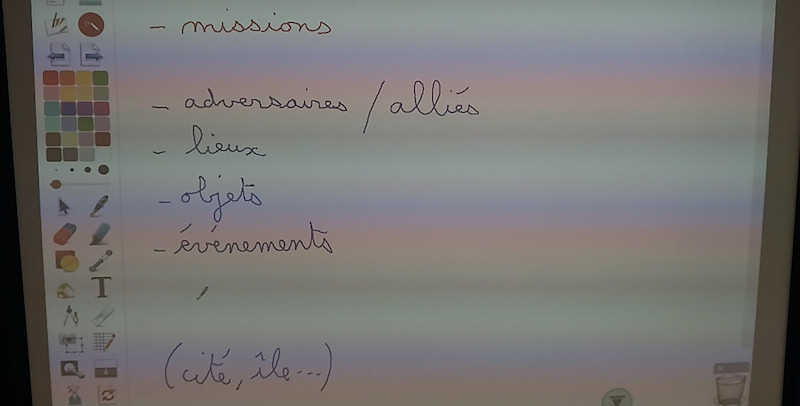 - missions
- adversaires / alliés
- lieux
- objets
- événements
(cité, île...)
T